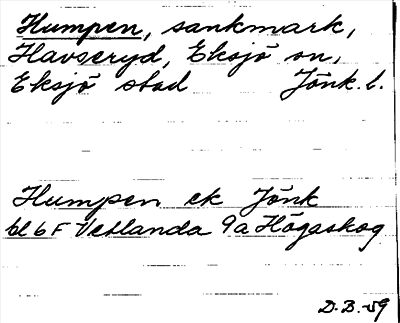 Humpen, sankmark,
Havseryd, Eksjö sn,
Eksjö stad Jönk. l.
Humpen ek Jönk
bl 6 F Vetlanda 9a Högaskog
D.B. -59